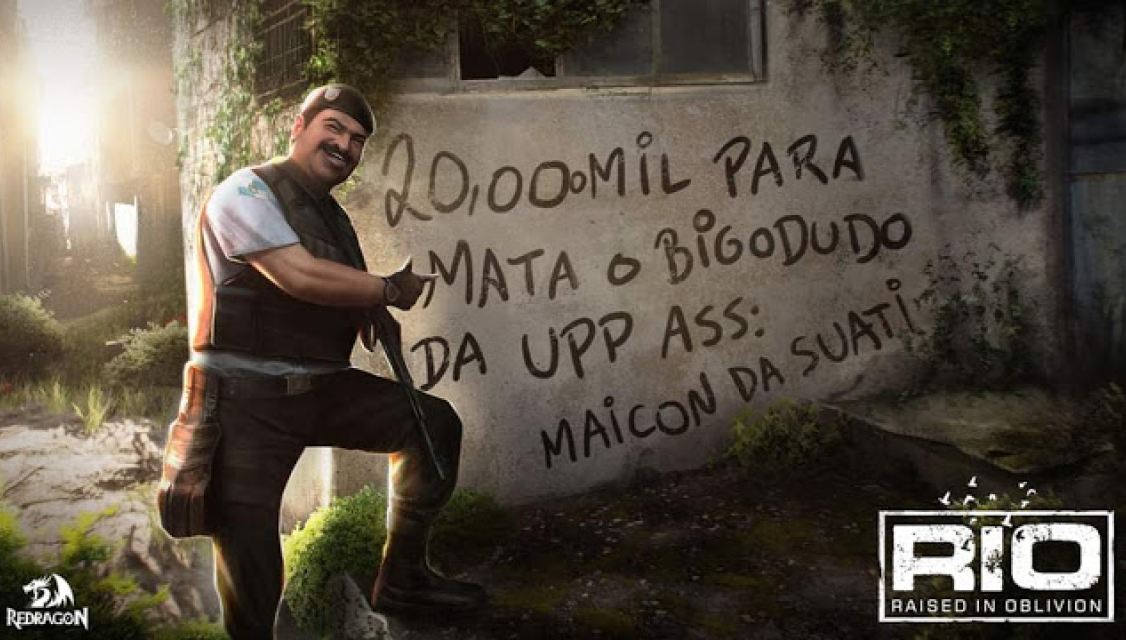 20,000MIL PARA
MATA O BIGODUDO
DA UPP ASS:
MAICON DA SUATI
REDRAGON
RIO
RAISED IN OBLIVION